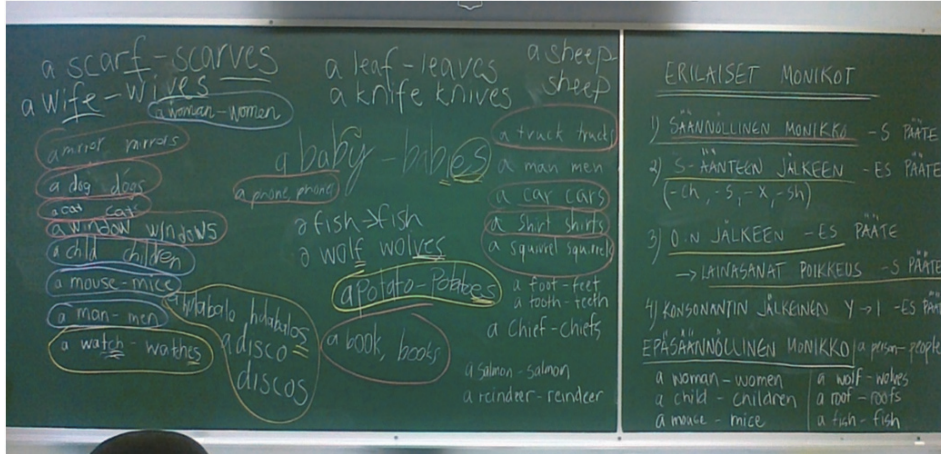 a scarf - scarves
a wife - wives
a woman - women
a mirror mirrors
a dog dogs
a cat cats
a window windows
a child children
a mouse - mice
a man - men
a watch - watches
a leaf - leaves
a knife knives
a baby - babies
a phone, phones
a fish → fish
a wolf wolves
a potato - potatoes
hulabalos
a disco =
discos
a book, books
a sheep
sheep
a truck trucks
a man men
a car cars
a shirt shirts
a squirrel squirrels
a foot - feet
a tooth - teeth
a chief - chiefs
a salmon - salmon
a reindeer - reindeer
ERILAISET MONIKOT
1) SÄÄNNÖLLINEN MONIKKO - S PÄÄTE
2) S-ÄÄNTEEN JÄLKEEN - ES PÄÄTE
(-ch, -s, -x, -sh)
3) O:N JÄLKEEN - ES PÄÄTE
→ LAINASANAT POIKKEUS - S PÄÄTE
4) KONSONANTIN JÄLKEINEN Y → I - ES PÄÄTE
EPÄSÄÄNNÖLLINEN MONIKKO a person - people
a woman - women
a child - children
a mouse - mice
a wolf - wolves
a roof - roofs
a fish - fish